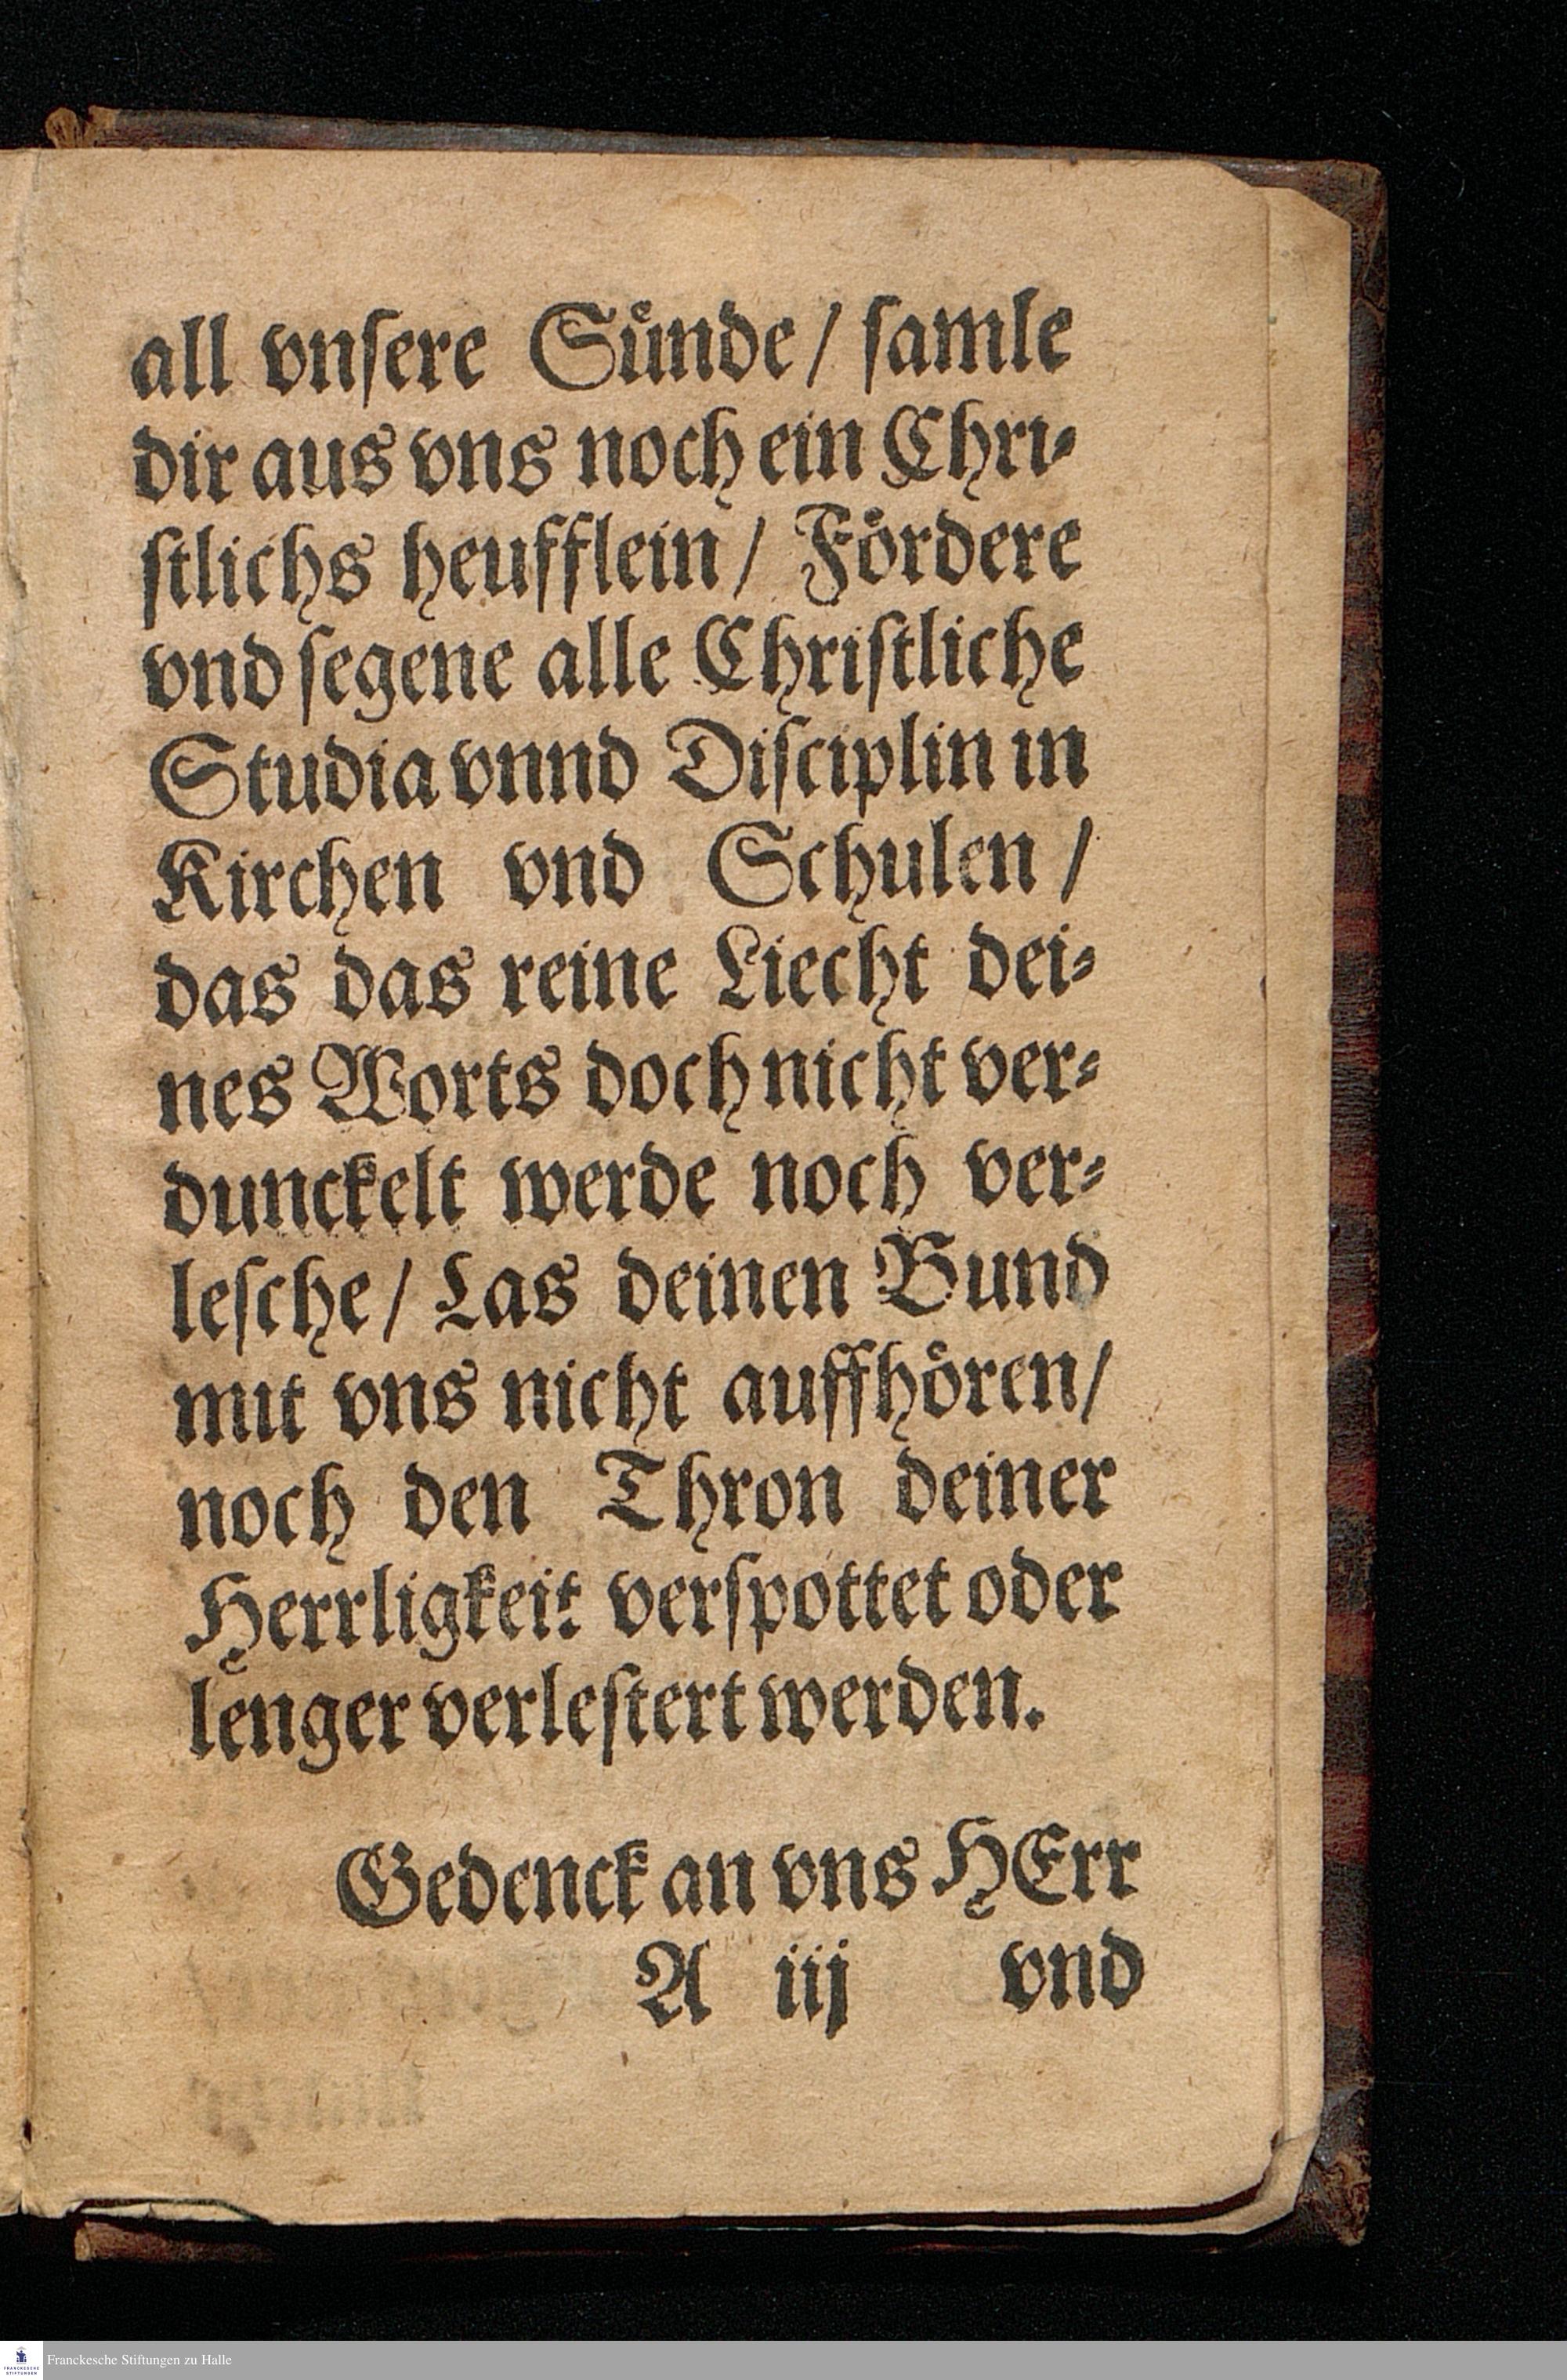 all vnſere Suͤnde / ſamle
dir aus vns noch ein Chri⸗
ſtlichs heufflein / Foͤrdere
vnd ſegene alle Chriſtliche
Studia vnnd Diſciplin in
Kirchen vnd Schulen /
das das reine Liecht dei⸗
nes Worts doch nicht ver⸗
dunckelt werde noch ver⸗
leſche / Las deinen Bund
mit vns nicht auffhoͤren /
noch den Thron deiner
Herrligkeit verſpottet oder
lenger verleſtert werden.
Gedenck an vns HErr
A iij vnd
FRANCKESCHE
STIFTUNGEN
Franckesche Stiftungen zu Halle